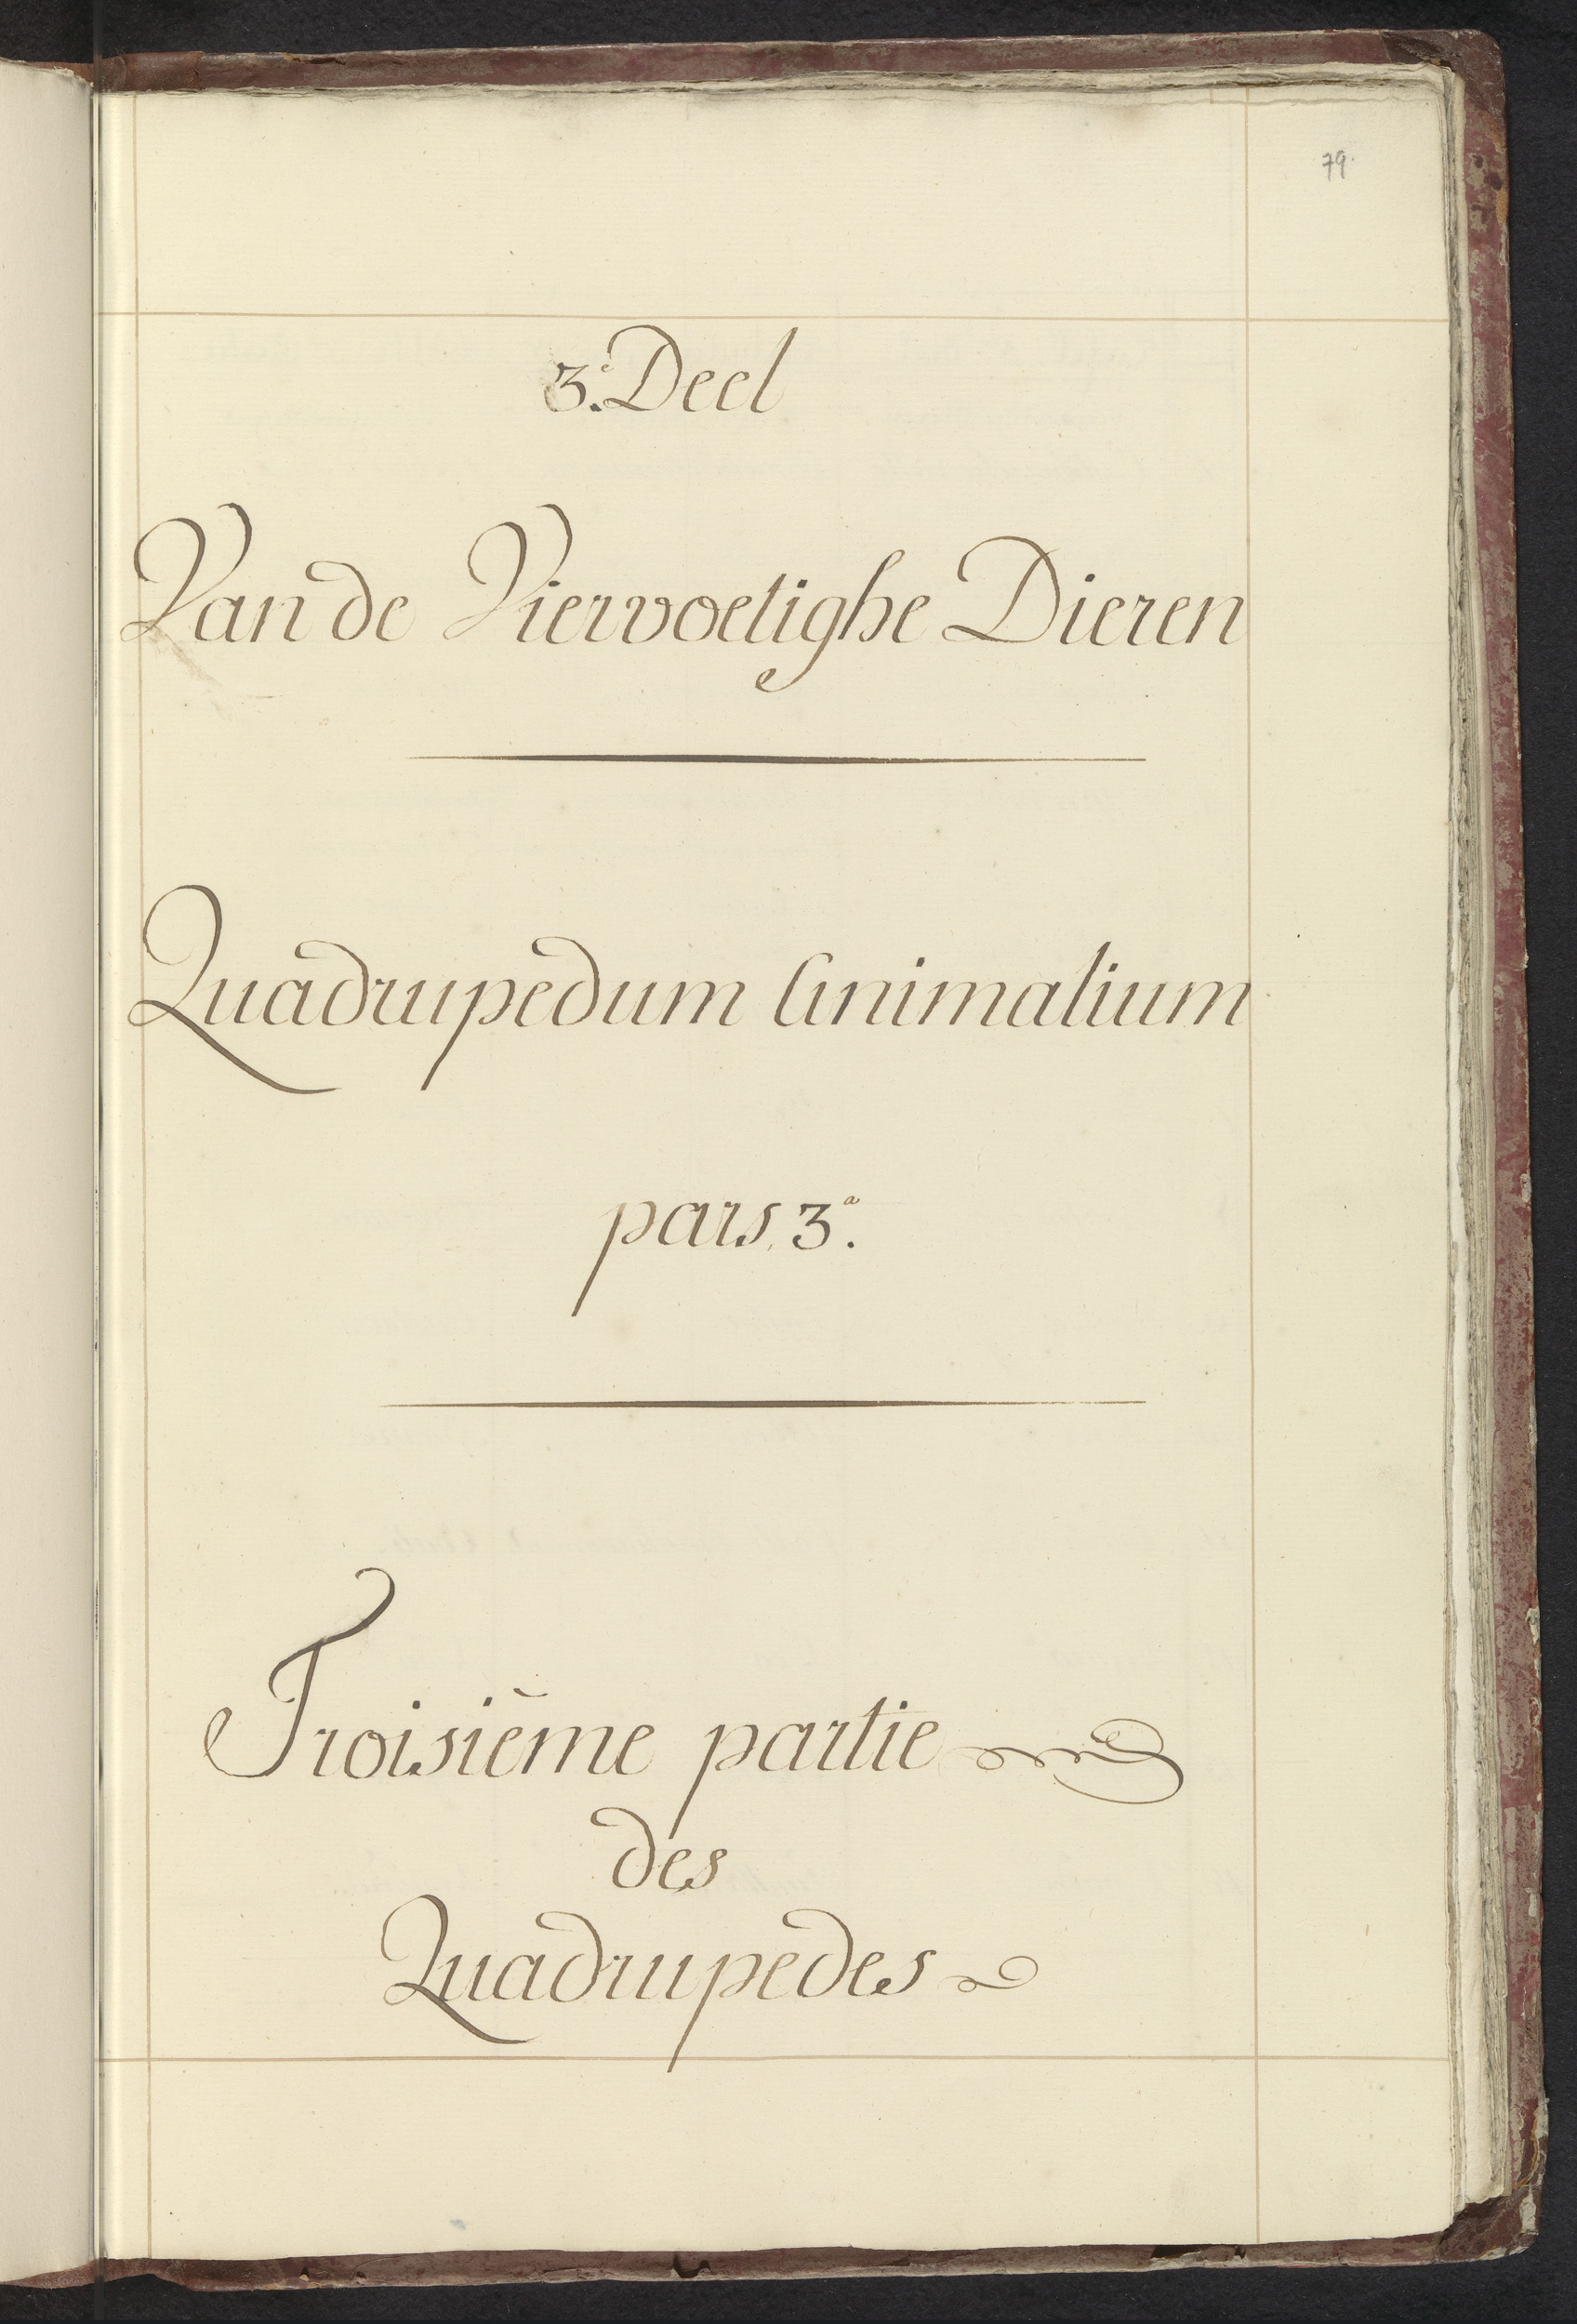 79.
3.e Deel
Van de Viervoetighe Dieren
Quadrupedum Animalium
pars. 3.a
Troisiême partie
des
Quadrupedes